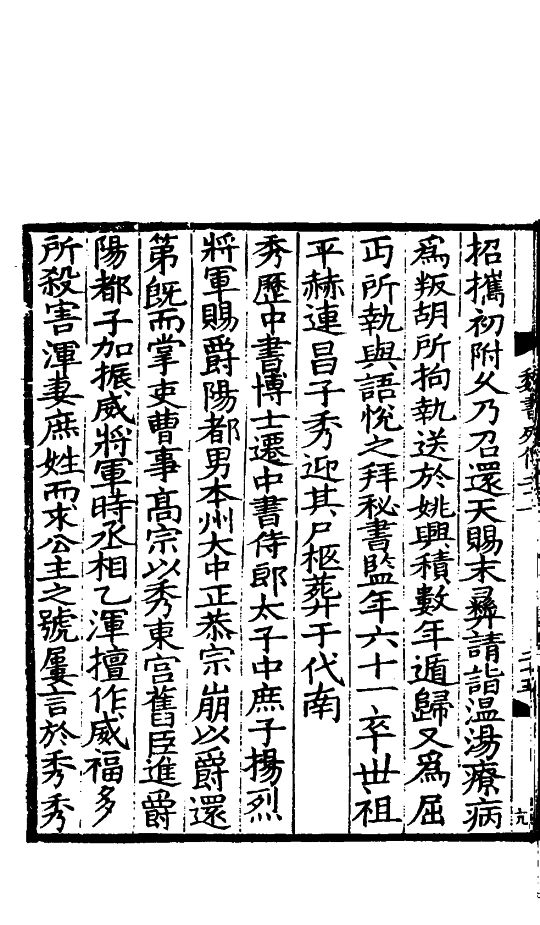 招攜初附久乃召還天賜末彝請詣温湯療病
爲叛胡所拘執送於姚興積數年遁歸又爲屈
丐所執與語悅之拜秘書監年六十一卒世祖
平赫連昌子秀迎其尸柩葬于代南
秀歷中書博士遷中書侍郎太子中庶子揚烈
將軍賜爵陽都男本州大中正恭宗崩以爵還
第旣而掌吏曹事髙宗以秀東宫舊臣進爵
陽都子加振威將軍時丞相乙渾擅作威福多
所殺害渾妻庶姓而求公主之號屢言於秀秀
魏書列傳